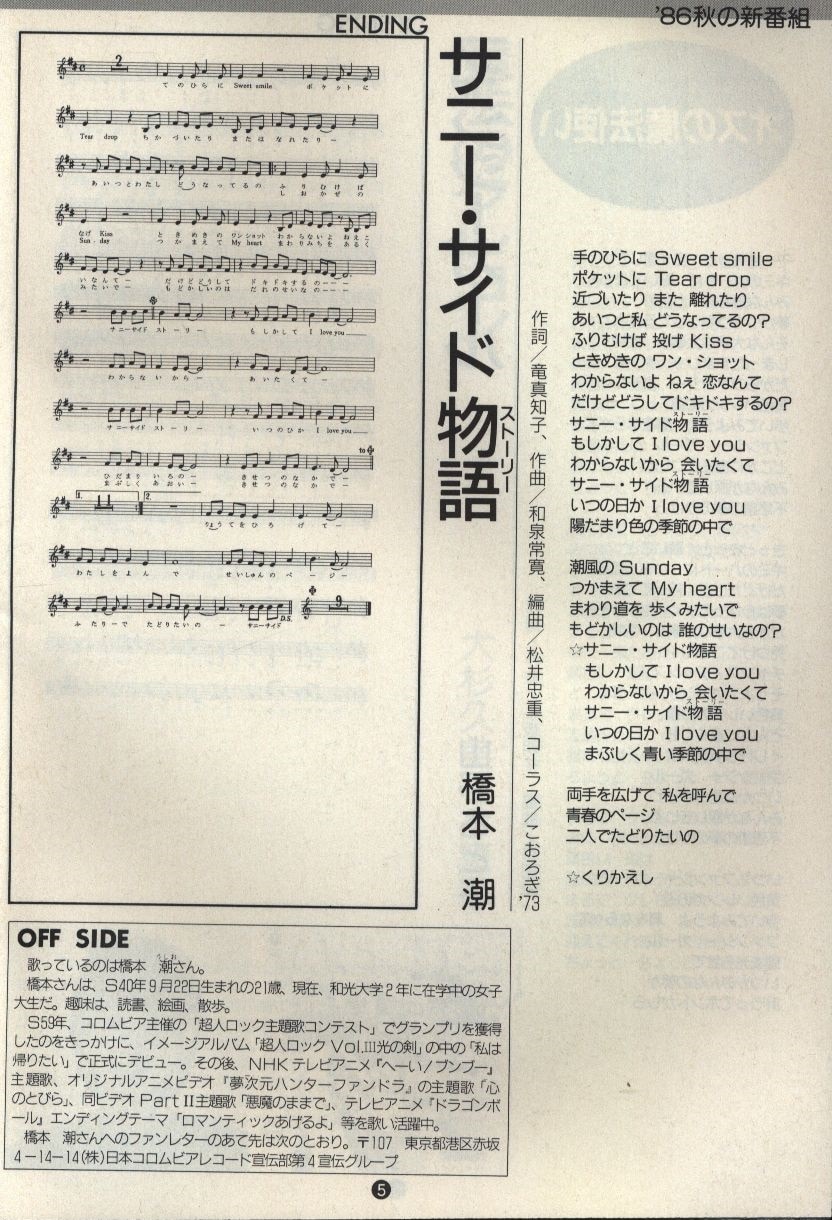 '86秋の新番組
ENDING
サニー・サイド物語
ストーリー
作詞／竜真知子、作曲／和泉常寛、編曲／松井忠重、コーラス／こおろぎ'73
橋本 潮
てのひらに Sweet smile ポケットに
Tear drop ちかづいたり またはなれたりー
あいつとわたし どうなってるの ふりむけば
しおかぜの
なげ Kiss ときめきの ワンショット わからないよ ねえこ
Sun-day つかまえて My heart まわりみちを あるく
いなんてー だけどどうして ドキドキするのーーー
みたいでー もどかしいのは だれのせいなのーーー
サニーサイド ストーリー もしかして I love you
わからないからー あいたくてー
サニーサイド ストーリー いつのひか I love you
to
ひだまりいろのー きせつのなかでー
まぶしくあおいー きせつのなかでー
1. 2.
りょうてをひろげてー
わたしをよんで せいしゅんのページー
ふたりーで たどりたいのー サニーサイド D.S.
手のひらに Sweet smile
ポケットに Tear drop
近づいたり また 離れたり
あいつと私 どうなってるの?
ふりむけば 投げ Kiss
ときめきの ワン・ショット
わからないよ ねぇ 恋なんて
だけどどうしてドキドキするの?
サニー・サイド物語
ストーリー
もしかして I love you
わからないから 会いたくて
サニー・サイド物語
ストーリー
いつの日か I love you
陽だまり色の季節の中で
潮風の Sunday
つかまえて My heart
まわり道を 歩くみたいで
もどかしいのは 誰のせいなの?
☆サニー・サイド物語
もしかして I love you
わからないから 会いたくて
サニー・サイド物語
ストーリー
いつの日か I love you
まぶしく青い季節の中で
両手を広げて 私を呼んで
青春のページ
二人でたどりたいの
☆くりかえし
OFF SIDE
歌っているのは橋本 潮さん。
うしお
橋本さんは、S40年9月22日生まれの21歳、現在、和光大学2年に在学中の女子
大生だ。趣味は、読書、絵画、散歩。
S59年、コロムビア主催の「超人ロック主題歌コンテスト」でグランプリを獲得
したのをきっかけに、イメージアルバム「超人ロック Vol.III光の剣」の中の「私は
帰りたい」で正式にデビュー。その後、NHKテレビアニメ『へーい!ブンブー』
主題歌、オリジナルアニメビデオ『夢次元ハンターファンドラ』の主題歌「心
のとびら」、同ビデオ Part II主題歌「悪魔のままで」、テレビアニメ『ドラゴンボ
ール』エンディングテーマ「ロマンティックあげるよ」等を歌い活躍中。
橋本 潮さんへのファンレターのあて先は次のとおり。〒107 東京都港区赤坂
4-14-14(株)日本コロムビアレコード宣伝部第4宣伝グループ
5